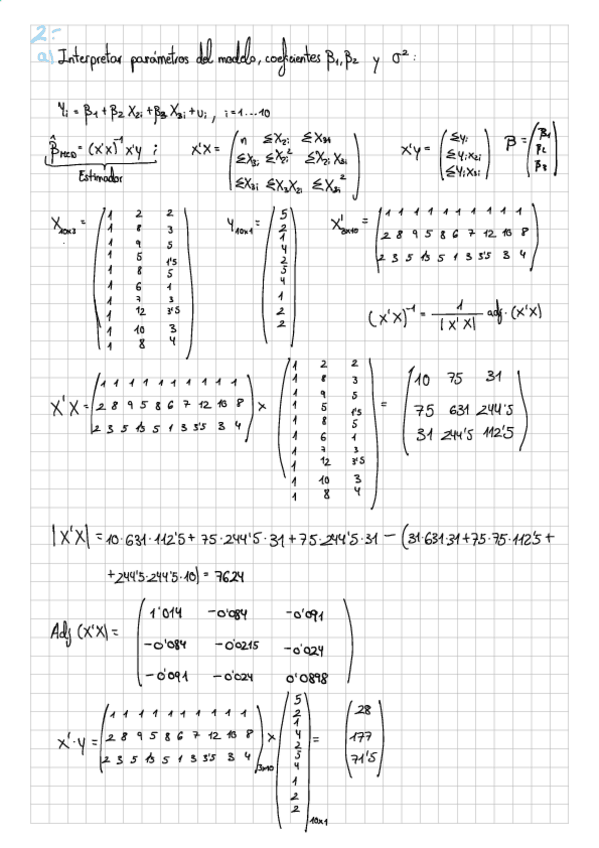 2:-
a) Interpretar parámetros del modelo, coeficientes β₁, β₂ y σ²:
Yi = β₁ + β₂ X₂i + β₃ X₃i + ui, i = 1...10
β̂MCO = (X'X)⁻¹ X'Y ; X'X = ( n ΣX₂i ΣX₃i
ΣX₂i ΣX₂i² ΣX₂i X₃i
ΣX₃i ΣX₃X₂i ΣX₃i² )
X'Y = ( Σyi
Σyi x₂i
Σyi x₃i )
β = ( β₁
β₂
β₃ )
Estimador
X10x3 = ( 1 2 2
1 8 3
1 9 5
1 5 1'5
1 8 5
1 6 1
1 7 3
1 12 3'5
1 10 3
1 8 4 )
Y10x1 = ( 5
2
1
4
2
5
4
1
2
2 )
X'3x10 = ( 1 1 1 1 1 1 1 1 1 1
2 8 9 5 8 6 7 12 10 8
2 3 5 1'5 5 1 3 3'5 3 4 )
(X'X)⁻¹ = 1 / |X'X| adj. (X'X)
X'X = ( 1 1 1 1 1 1 1 1 1 1
2 8 9 5 8 6 7 12 10 8
2 3 5 1'5 5 1 3 3'5 3 4 ) x
( 1 2 2
1 8 3
1 9 5
1 5 1'5
1 8 5
1 6 1
1 7 3
1 12 3'5
1 10 3
1 8 4 ) =
( 10 75 31
75 631 244'5
31 244'5 112'5 )
|X'X| = 10·631·112'5 + 75·244'5·31 + 75·244'5·31 − (31·631·31 + 75·75·112'5 +
+244'5·244'5·10) = 7624
Adj (X'X) = ( 1'014 -0'084 -0'091
-0'084 -0'0215 -0'024
-0'091 -0'024 0'0898 )
X'·Y = ( 1 1 1 1 1 1 1 1 1 1
2 8 9 5 8 6 7 12 10 8
2 3 5 1'5 5 1 3 3'5 3 4 )3x10 x
( 5
2
1
4
2
5
4
1
2
2 )10x1 =
( 28
177
71'5 )